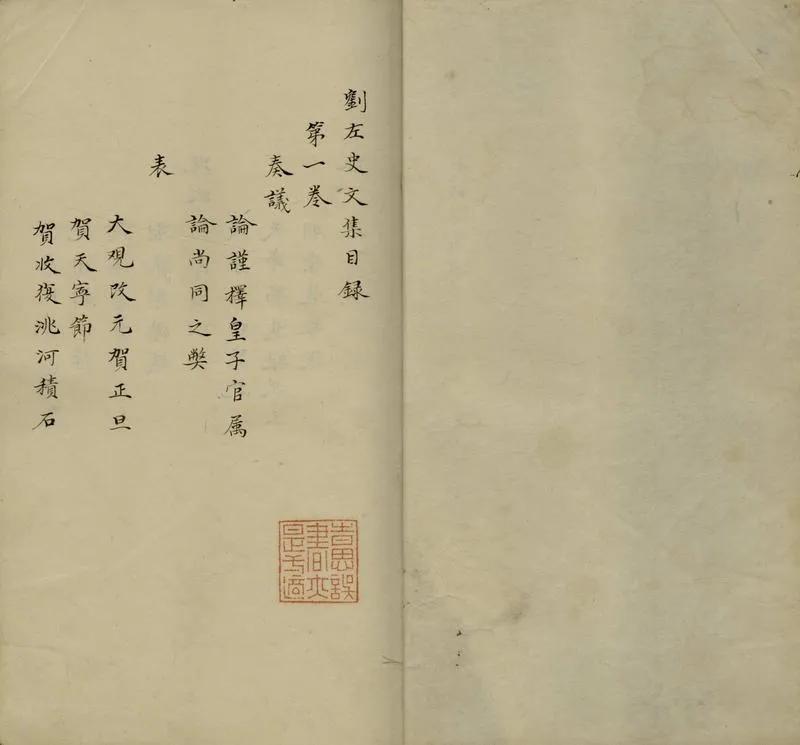 劉左史文集目録
第一巻
奏議
論謹擇皇子官属
論尚同之獘
表
大觀改元賀正旦
賀天寧節
賀收復洮河積石
思誤書亦是一適